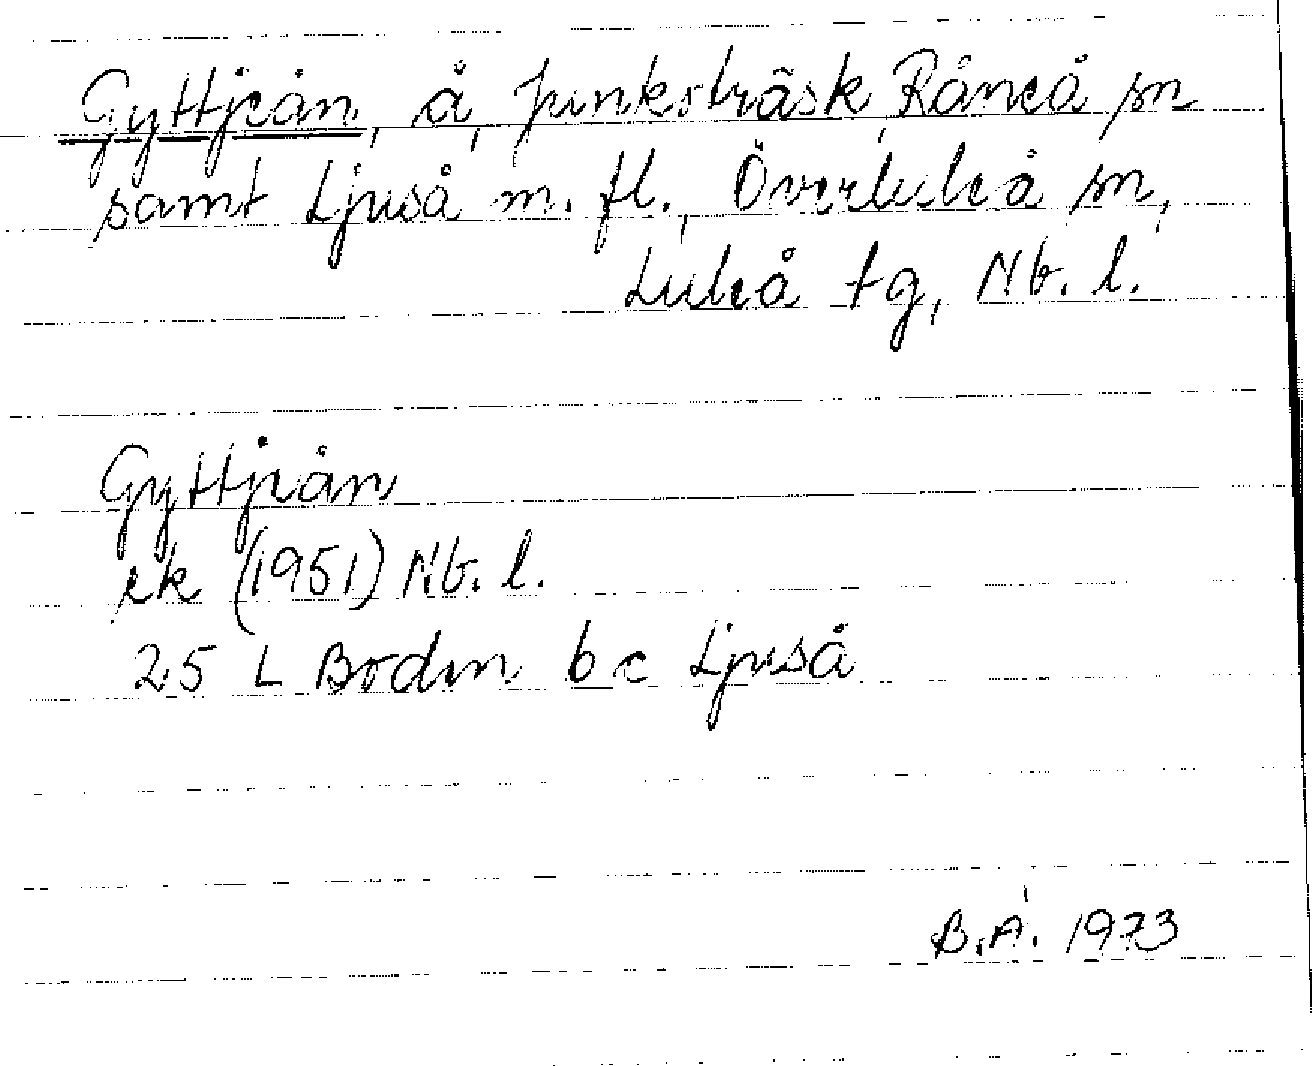 Gyttjeån, å, Junkoträsk, Råneå sn
samt Ljuså m. fl., Överluleå sn,
Luleå tg, Nb. l.
Gyttjeån
ek (1951) Nb. l.
25 L Boden b c Ljuså
B.Å. 1973